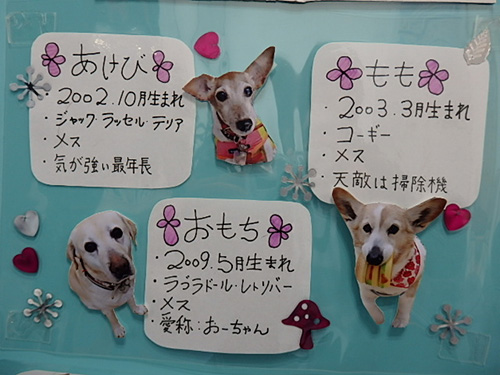 あけび
・2002.10月生まれ
・ジャック・ラッセル・テリア
・メス
・気が強い最年長
もも
・2003.3月生まれ
・コーギー
・メス
・天敵は掃除機
おもち
・2009.5月生まれ
・ラブラドール・レトリバー
・メス
・愛称:おーちゃん